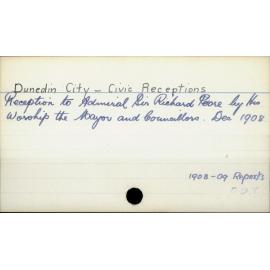 Dunedin City - Civic Receptions
Reception to Admiral Sir Richard Poore by His
Worship the Mayor and Councillors. Dec 1908
1908-09 Reports